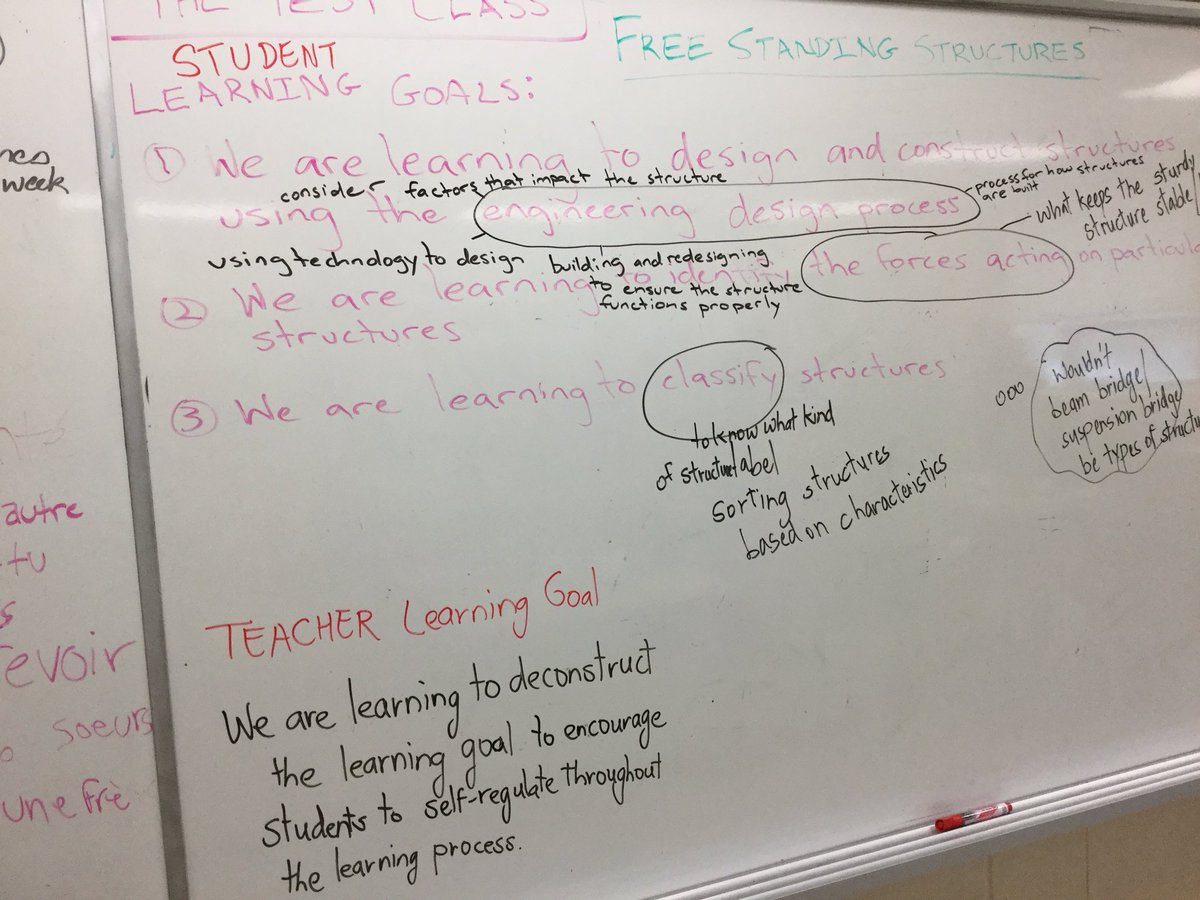 THE TEST CLASS
FREE STANDING STRUCTURES
STUDENT
LEARNING GOALS:
① We are learning to design and construct structures
consider factors that impact the structure
process for how structures
are built
using the engineering design process
what keeps the sturdy
structure stable
using technology to design
building and redesigning
to ensure the structure
functions properly
② We are learning to identify the forces acting on
structures
③ We are learning to classify structures
to know what kind
of structure label
sorting structures
based on characteristics
ooo
wouldn't
beam bridge/
suspension bridge
be types of
TEACHER Learning Goal
We are learning to deconstruct
the learning goal to encourage
students to self-regulate throughout
the learning process.
week
autre
tu
evoir
soeurs
une frè